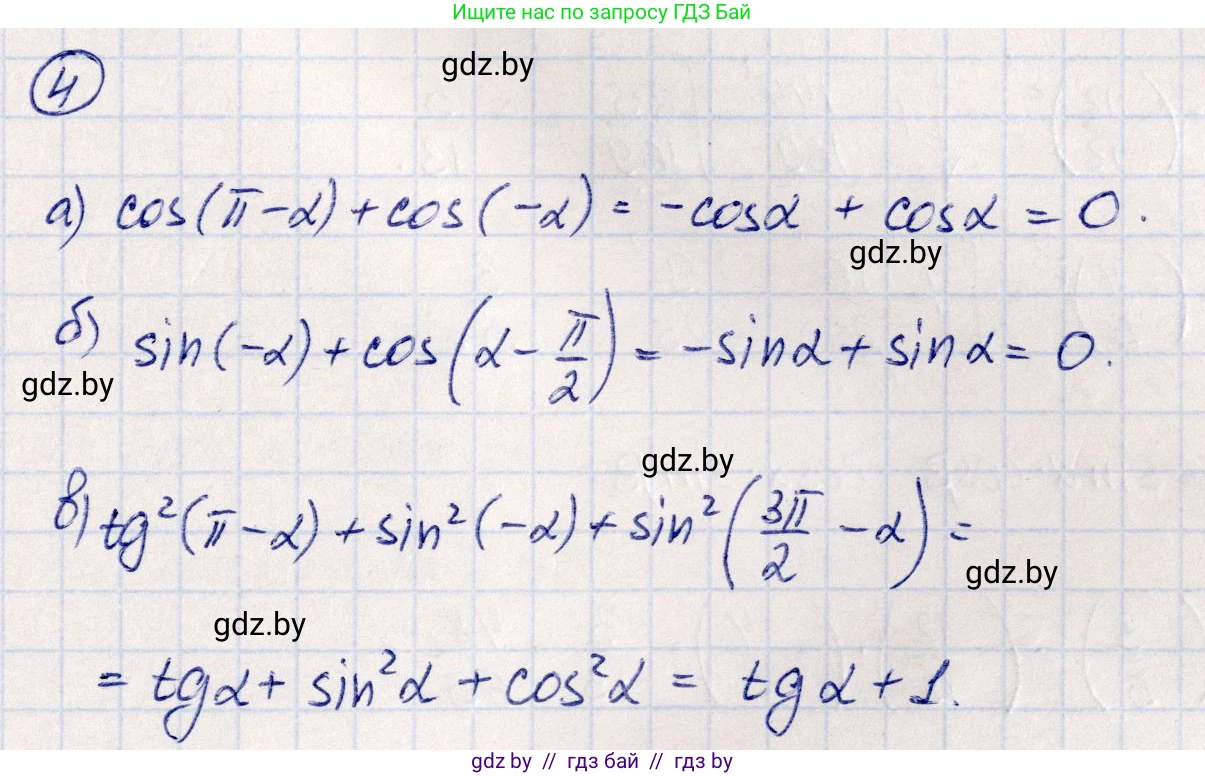 Ищите нас по запросу ГДЗ Бай
gdz.by
4
а) cos(π-α)+cos(-α) = -cosα + cosα = 0.
gdz.by
б) sin(-α)+cos(α-π/2) = -sinα+sinα = 0.
gdz.by
gdz.by
в) tg²(π-α)+sin²(-α)+sin²(3π/2-α) =
gdz.by
gdz.by
= tgα+ sin²α + cos²α = tgα+1.
gdz.by // гдз бай // гдз by